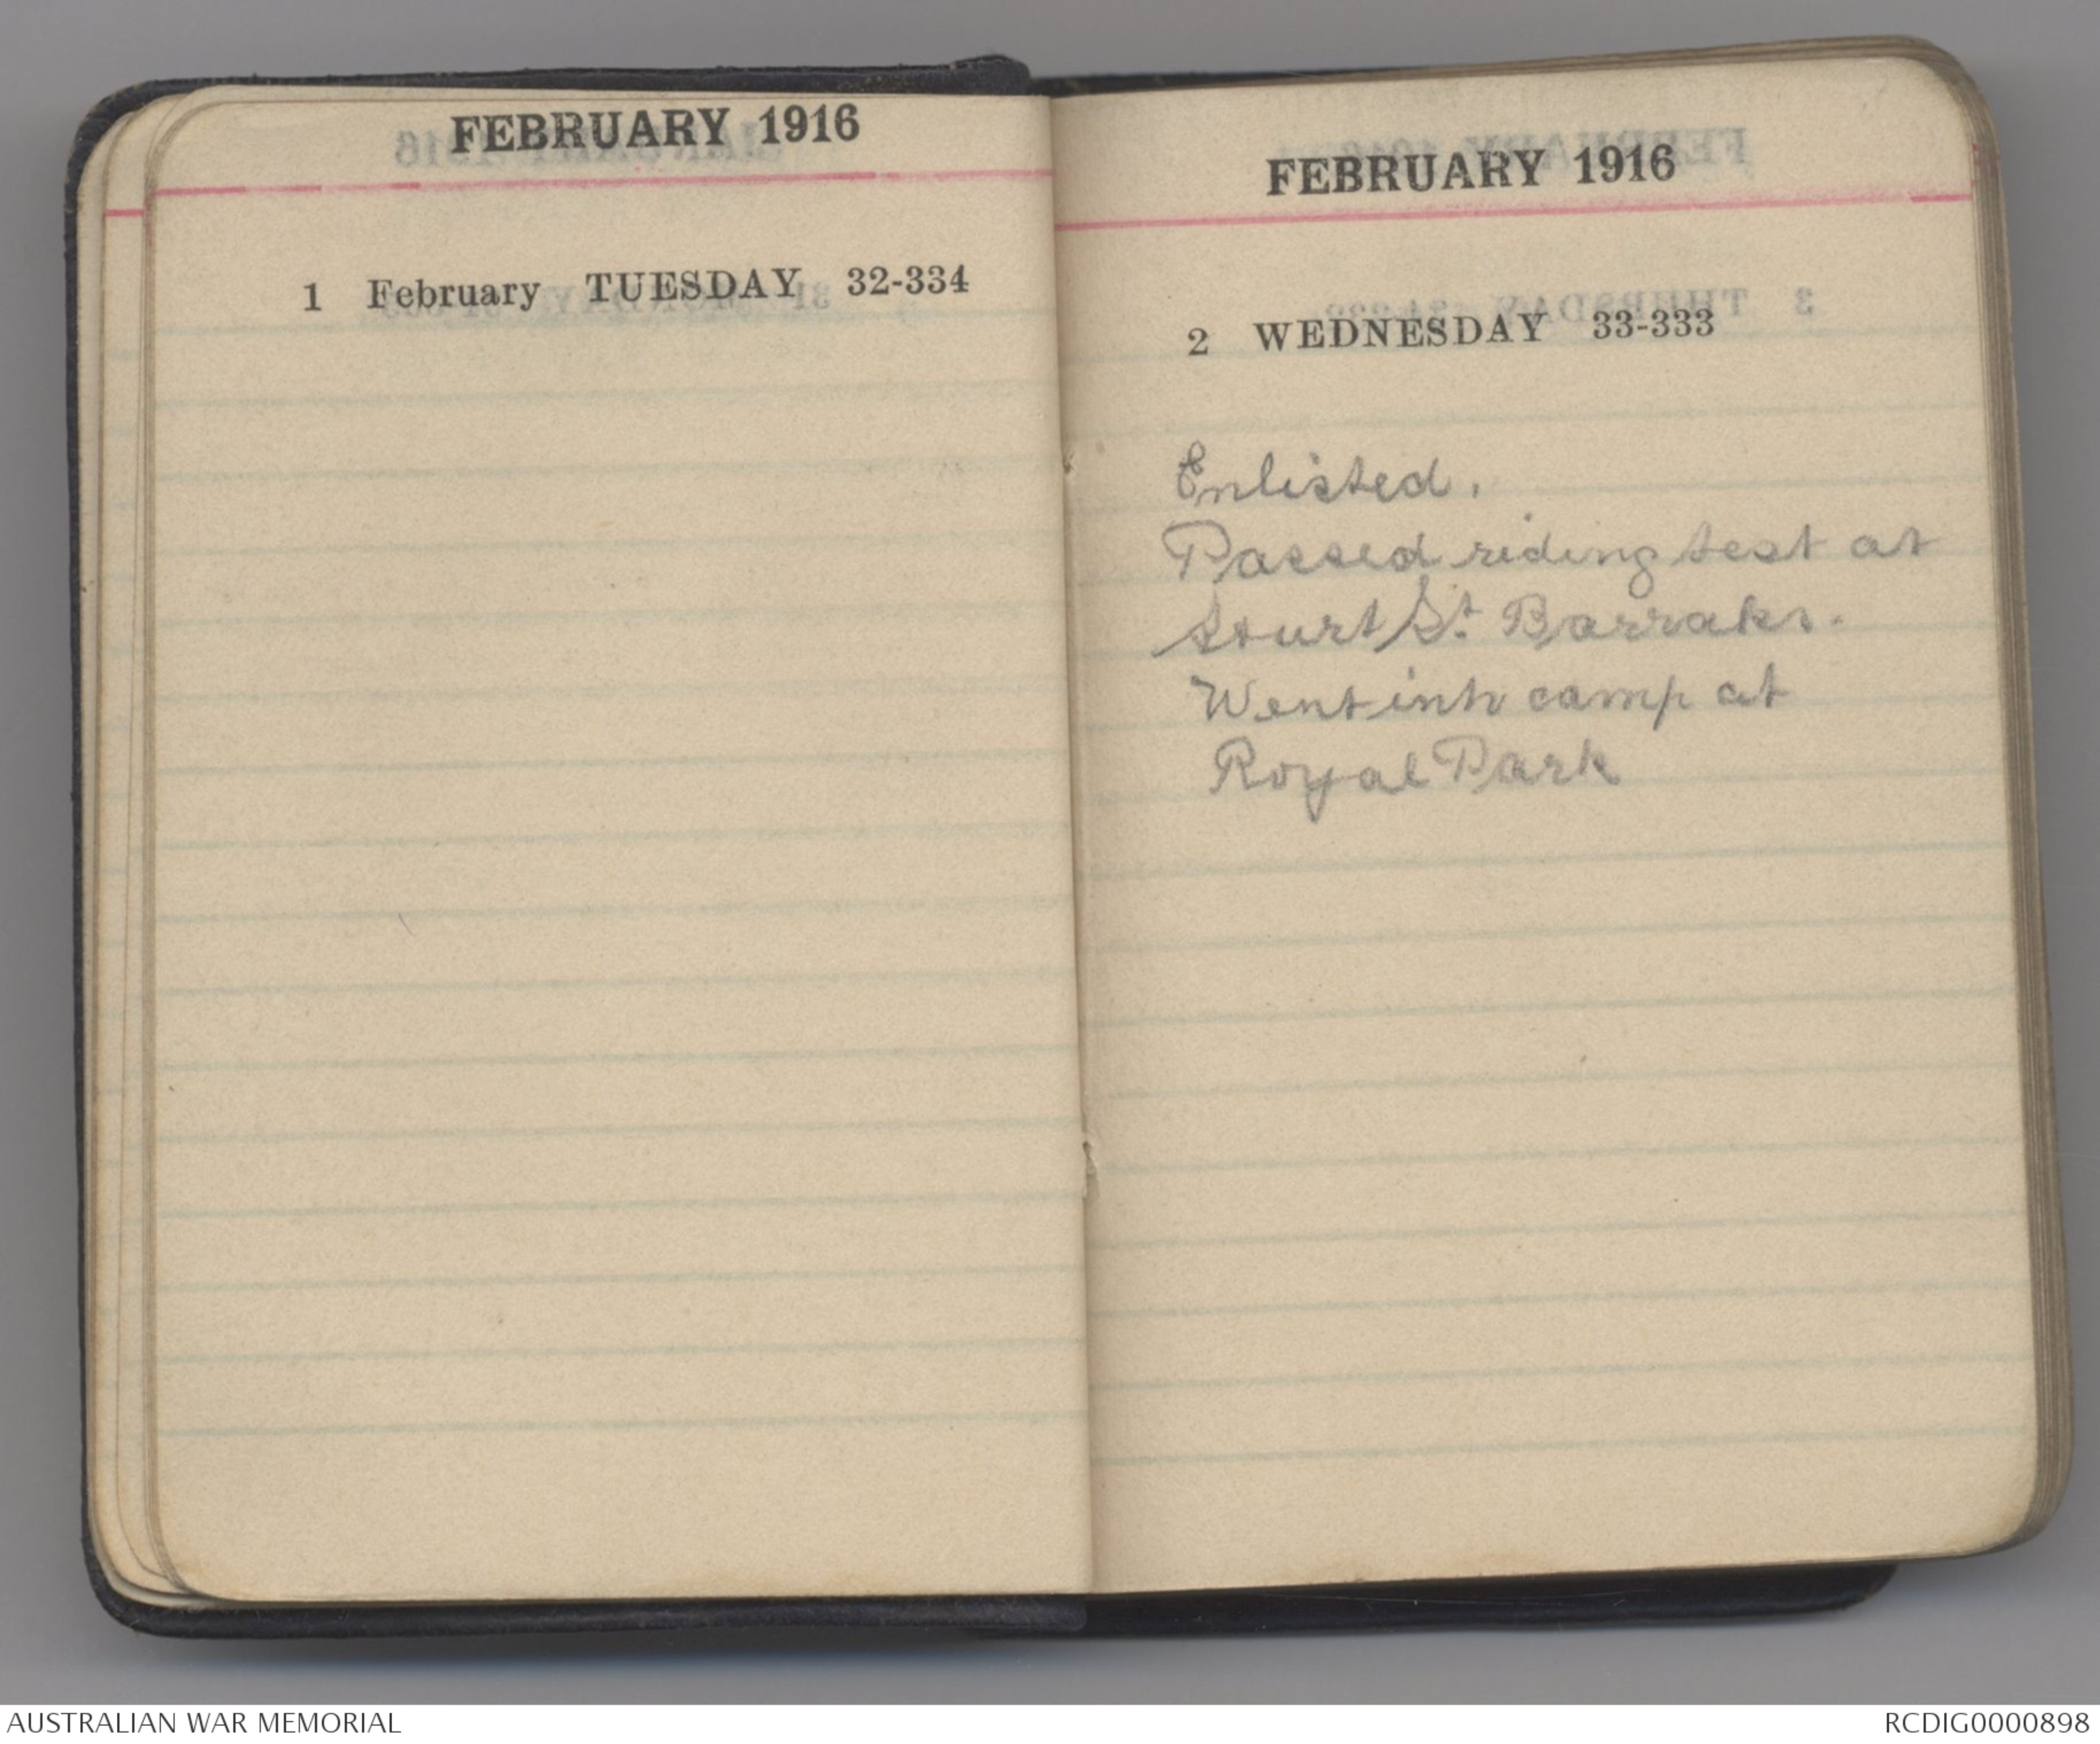 FEBRUARY 1916
1 February TUESDAY 32-334
FEBRUARY 1916
2 WEDNESDAY 33-333
Enlisted.
Passed riding test at
Sturt St. Barraks.
Went into camp at
Royal Park
AUSTRALIAN WAR MEMORIAL
RCDIG0000898